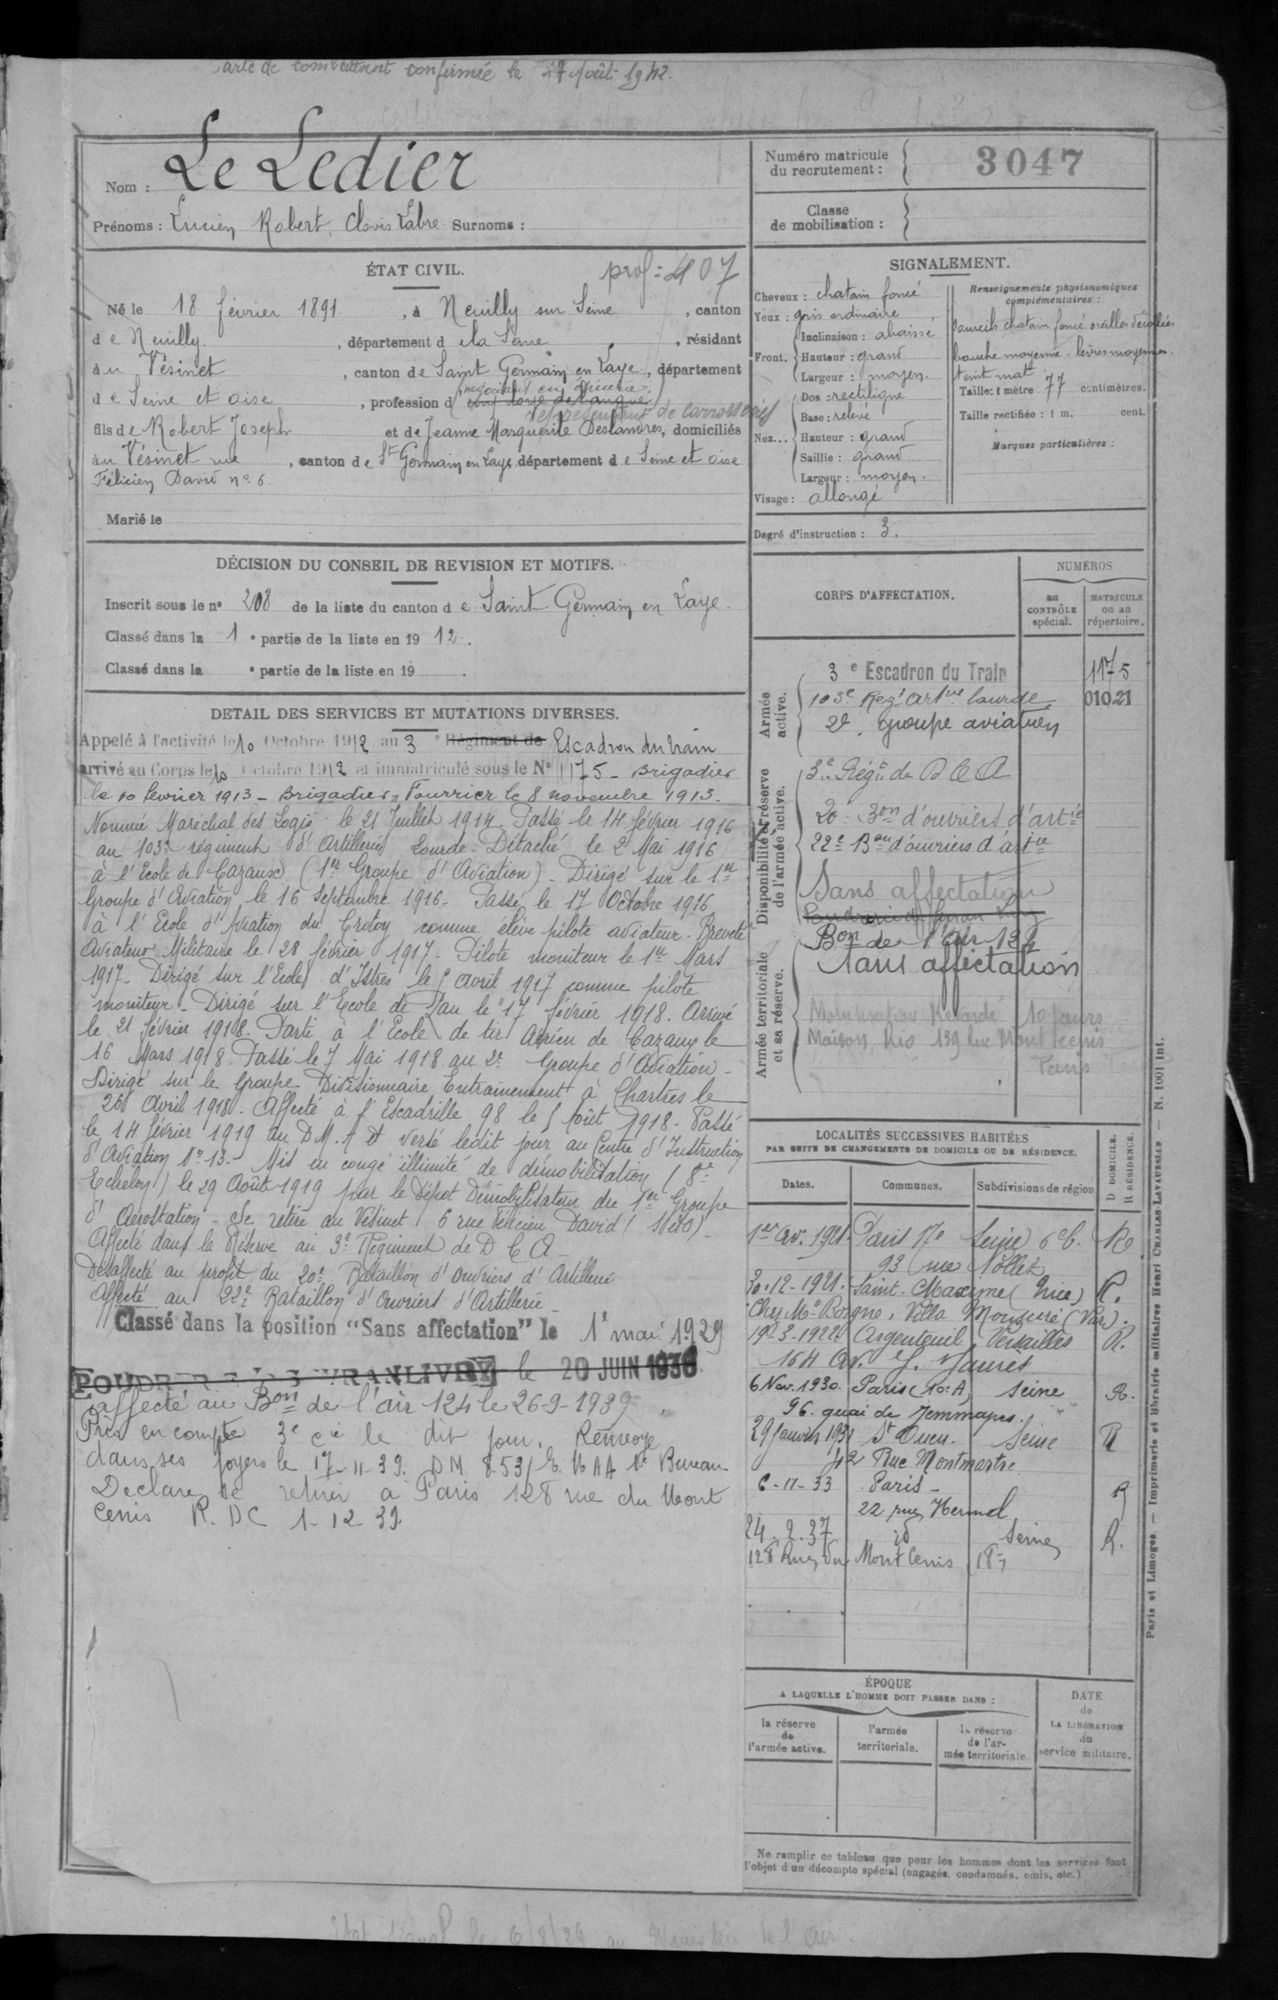 carte de combattant confirmée le 17 Août 1942.
Nom : Le Ledier
Prénoms : Lucien Robert, Clovis Labre Surnoms :
Numéro matricule du recrutement : 3047
Classe de mobilisation :
ÉTAT CIVIL.
prof = 407
Né le 18 février 1891, à Neuilly sur Seine, canton
de Neuilly, département de la Seine, résidant
au Vésinet, canton de Saint Germain en Laye, département
de Seine et oise, profession d
représentant de carrosserie
fils de Robert Joseph et de Jeanne Marguerite Deslandres, domiciliés
au Vésinet rue, canton de St Germain en Laye département de Seine et oise
Félicien David no 6.
Marié le
SIGNALEMENT.
Cheveux : chatain foncé
Yeux : gris ordinaire
Front. Inclinaison : abaissé
Hauteur : grand
Largeur : moyen.
Nez... Dos : rectiligne
Base : relevé
Hauteur : grand
Saillie : grand
Largeur : moyen.
Visage : allongé
Renseignements physionomiques complémentaires :
sourcils chatain foncé oreilles décollées
bouche moyenne - lèvres moyennes.
teint mat
Taille : 1 mètre 77 centimètres.
Taille rectifiée : 1 m. cent.
Marques particulières :
Degré d'instruction : 3.
DÉCISION DU CONSEIL DE REVISION ET MOTIFS.
Inscrit sous le no 208 de la liste du canton de Saint Germain en Laye.
Classé dans la 1e partie de la liste en 1912.
Classé dans la e partie de la liste en 19 .
DETAIL DES SERVICES ET MUTATIONS DIVERSES.
Appelé à l'activité le 10 Octobre 1912 au 3e Régiment de Escadron du train
arrivé au Corps le 10 Octobre 1912 et immatriculé sous le No 1175 - Brigadier
le 10 fevrier 1913 - Brigadier-Fourrier le 8 novembre 1913.
Nommé Maréchal des Logis le 21 Juillet 1914. Passé le 14 février 1916
au 103e régiment d'Artillerie Lourde - Détaché le 2 Mai 1916
à l'Ecole de Cazaux (1er Groupe d'Aviation) - Dirigé sur le 1er
Groupe d'Aviation le 16 Septembre 1916 - Passé le 17 Octobre 1916
à l'Ecole d'Aviation du Crotoy comme élève pilote aviateur - Breveté
Aviateur Militaire le 28 février 1917 - Pilote moniteur le 1er Mars
1917 - Dirigé sur l'Ecole d'Istres le 5 avril 1917 comme pilote
moniteur - Dirigé sur l'Ecole de Pau le 17 février 1918. Arrivé
le 21 février 1918. Parti à l'Ecole de tir Aérien de Cazaux le
16 Mars 1918. Passé le 7 Mai 1918 au 2e Groupe d'Aviation -
Dirigé sur le Groupe Divisionnaire Entrainement à Chartres le
26 Avril 1918 - Affecté à l'Escadrille 98 le 5 Août 1918 - Passé
le 14 février 1919 au D.M.A et versé ledit jour au Centre d'Instruction
d'Aviation No 13 - Mis en congé illimité de démobilisation (8e
Echelon) le 29 Août 1919 par le Dépôt Démobilisateur du 1er Groupe
d'Aérostation - Se retire au Vésinet 6 rue Félicien David
Affecté dans la Réserve au 3e Régiment de D C A -
Désaffecté au profit du 20e Bataillon d'Ouvriers d'Artillerie
Affecté au 22e Bataillon d'Ouvriers d'Artillerie -
Classé dans la position "Sans affectation" le 1e mai 1929
le 20 JUIN 1938
affecté au Bon de l'air 124 le 26-9-1939
Pris en compte 3e cie le dit jour. Renvoyé
dans ses foyers le 17-11-39. DM 853 Bureau
Declare se retirer à Paris 128 rue du Mont
Cenis R. DC 1-12-39
CORPS D'AFFECTATION.
NUMEROS
au CONTRÔLE spécial.
MATRICULE ou au répertoire.
Armée active.
3e Escadron du Train 1175
103e Regt artrie lourde 01021
2e groupe aviation
Disponibilité et réserve de l'armée active.
3e Régt de D C A
20e Bon d'ouvriers d'artie
22e Bon d'ouvriers d'artie
Sans affectation
Bon de l'Air 124
Sans affectation
Armée territoriale et sa réserve.
Mobilisation Retardé 10 jours
Maison Rio 139 Rue Mont Cenis
Paris
LOCALITÉS SUCCESSIVES HABITÉES
PAR SUITE DE CHANGEMENTS DE DOMICILE OU DE RÉSIDENCE.
D DOMICILE.
R RÉSIDENCE.
Dates. Communes. Subdivisions de région
1er Av. 1921. Paris 17e Seine 6e B. R
93 rue Nollet
30-12-1921. Saint-Maxime (Nice) R.
Villa (Var).
19-3-1922 Argenteuil Versailles R.
164 Av. J. Jaurès
6 Nov. 1930. Paris (10e A) Seine R.
96 quai de Jemmapes.
29 Janvier 1931 St Ouen. Seine R
42 Rue Montmartre
6-11-33 Paris - R
22 rue Hermel
24.2.37 id Seine R.
128 Rue du Mont Cenis 18e
ÉPOQUE
A LAQUELLE L'HOMME DOIT PASSER DANS :
la réserve de l'armée active.
l'armée territoriale.
la réserve de l'armée territoriale.
DATE de LA LIBÉRATION du service militaire.
Ne remplir ce tableau que pour les hommes dont les services font
l'objet d'un décompte spécial (engagés, condamnés, omis, etc.)
Paris et Limoges. — Imprimerie et librairie militaires Henri CHARLES-LAVAUZELLE — N. 1001 int.